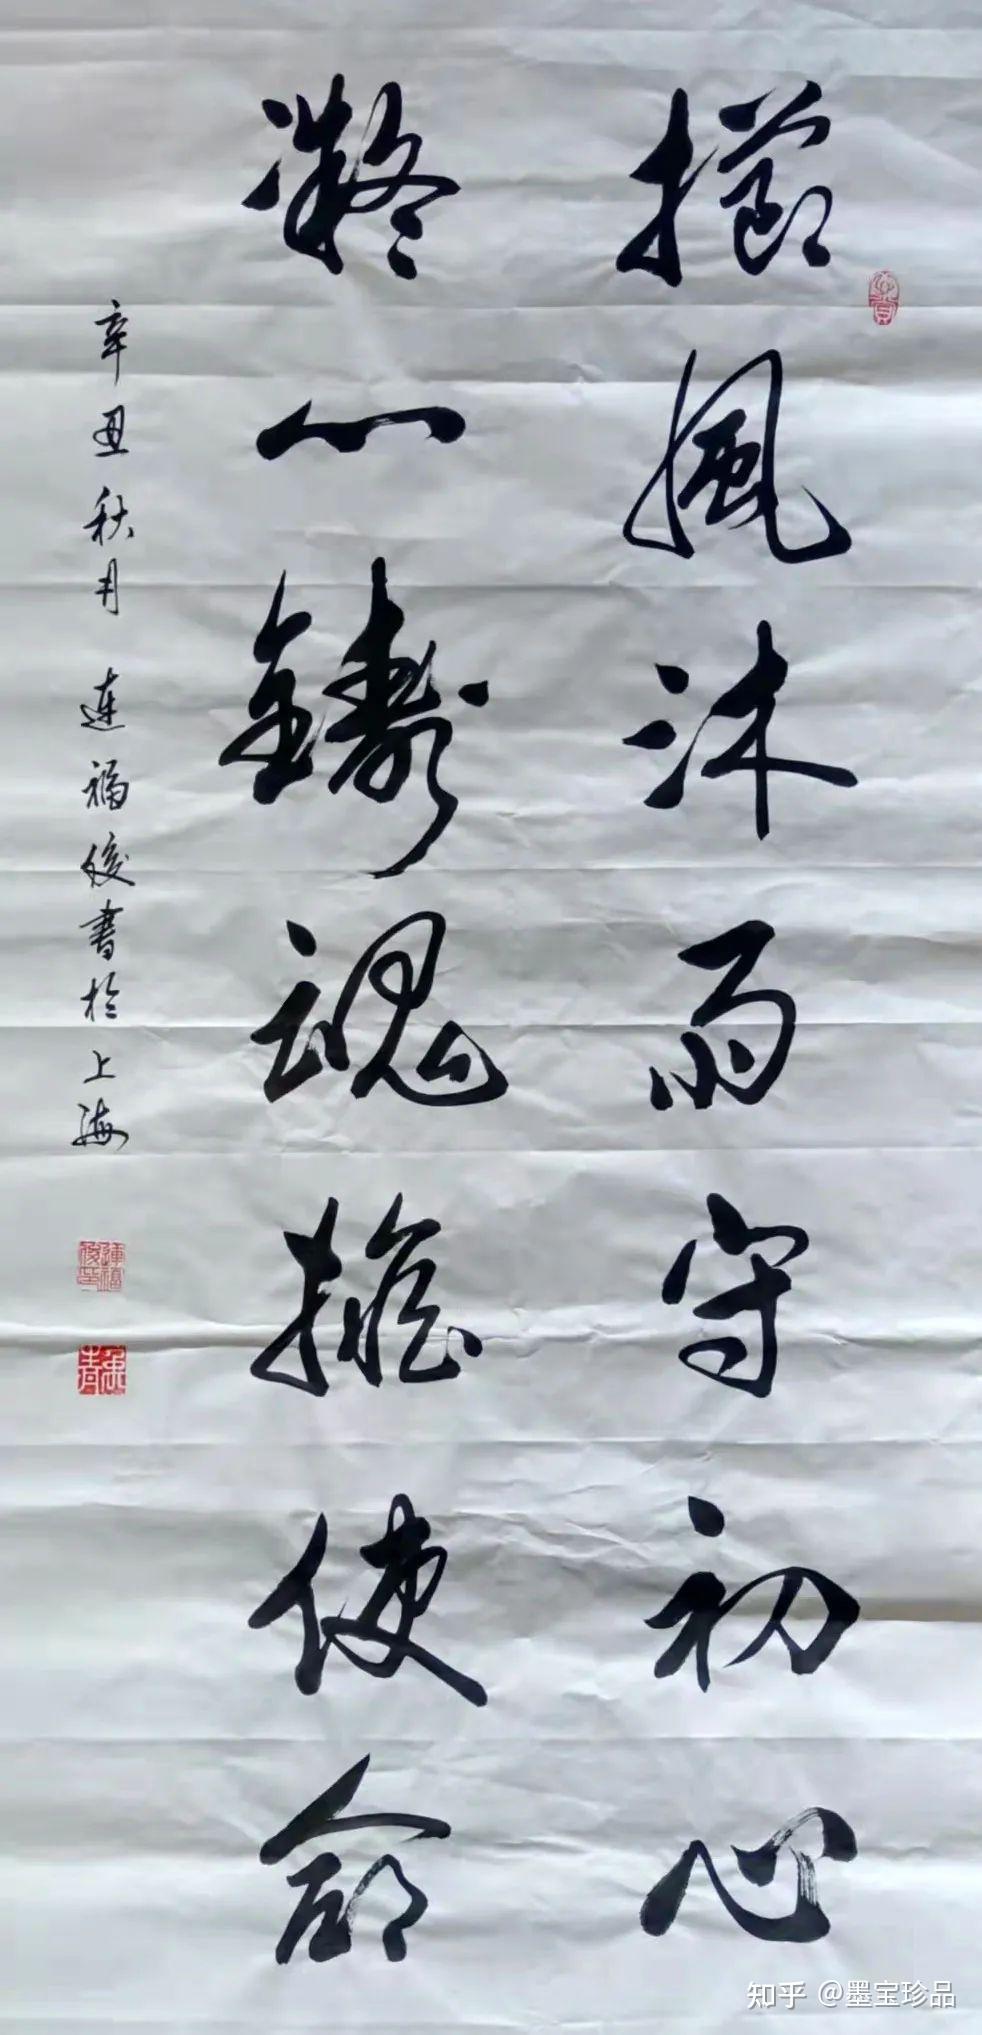 櫛風沐雨守初心
凝心鑄魂擔使命
辛丑秋月 連福俊書於上海
知乎 @墨宝珍品